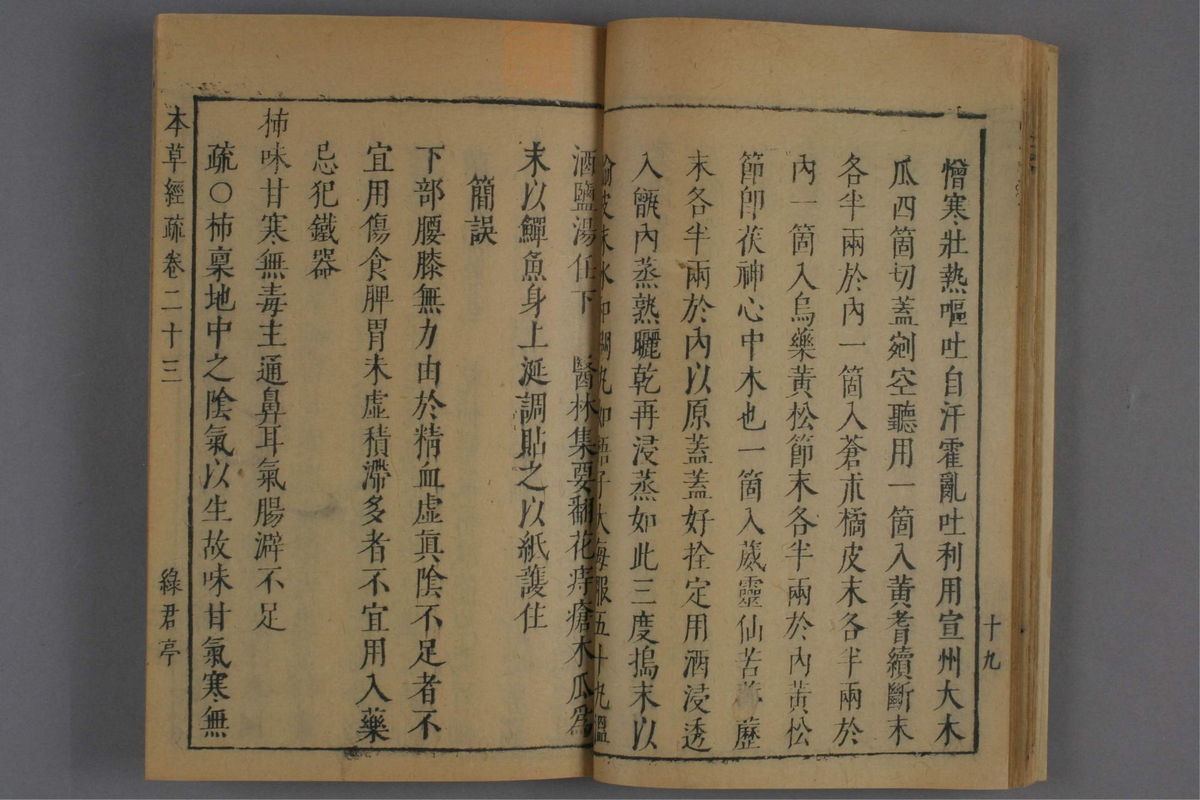 憎寒壯熱嘔吐自汗霍亂吐利用宣州大木
瓜四箇切蓋剜空聽用一箇入黄耆續斷末
各半兩於內一箇入蒼朮橘皮末各半兩於
內一箇入烏藥黄松節末各半兩於內黄松
節卽茯神心中木也一箇入葳靈仙苦葶藶
末各半兩於內以原蓋蓋好拴定用酒浸透
入甑內蒸熟曬乾再浸蒸如此三度搗末以
榆皮末水和糊丸如梧子大每服五十丸溫
酒鹽湯任下 醫林集要翻花痔瘡木瓜爲
末以鱓魚身上涎調貼之以紙護住
簡誤
下部腰膝無力由於精血虛眞陰不足者不
宜用傷食脾胃未虛積滯多者不宜用入藥
忌犯鐵器
柿味甘寒無毒主通鼻耳氣腸澼不足
疏○柿稟地中之陰氣以生故味甘氣寒無
本草經疏卷二十三
綠君亭
十九